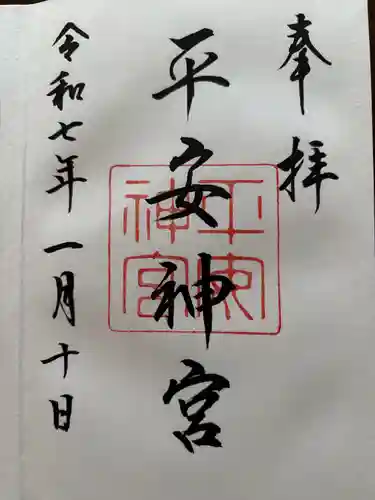 奉拝
平安神宮
令和七年一月十日
平安神宮